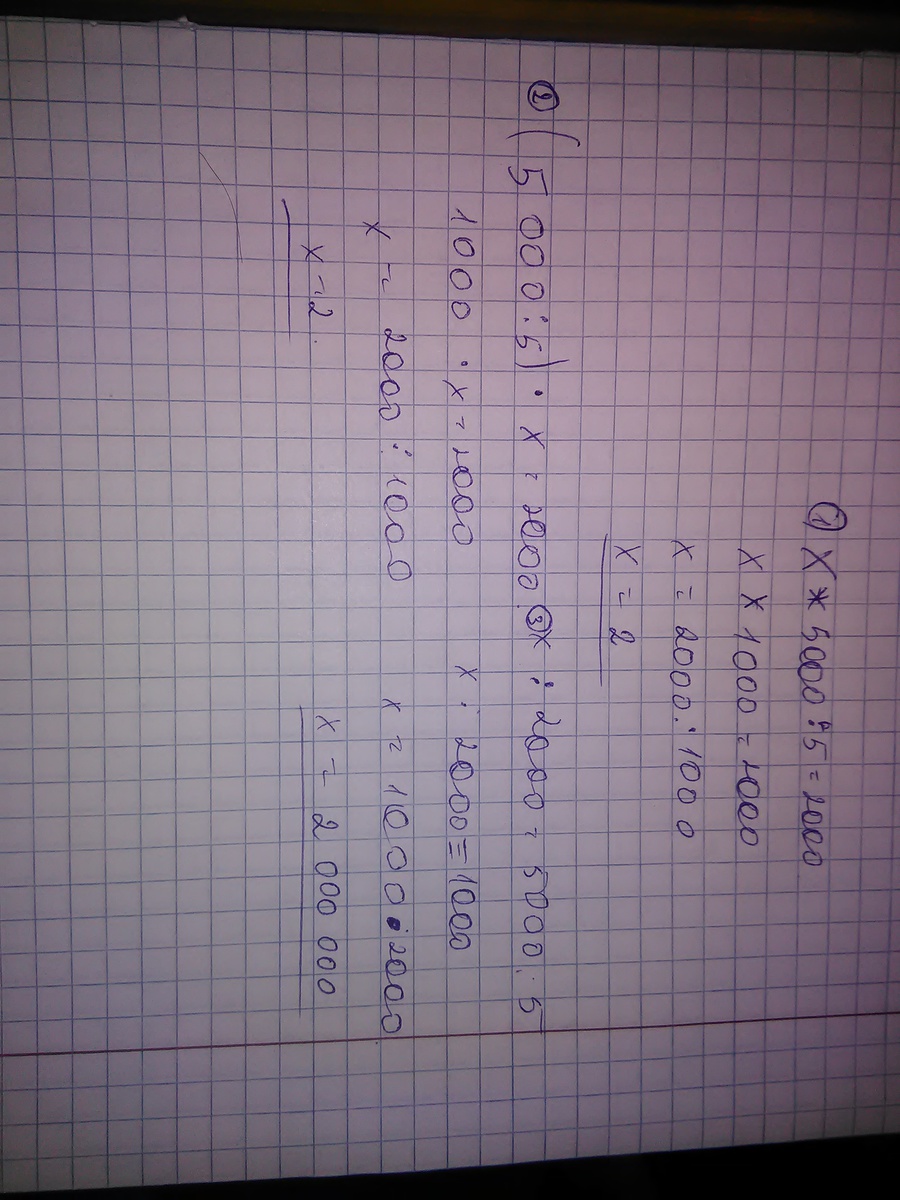 ① X * 5000 : 5 = 2000
X X 1000 = 2000
X = 2000 : 1000
X = 2
② ( 5 000 : 5 ) · X = 2000
1000 · X = 2000
X = 2000 : 1000
X = 2
③ X : 2000 = 5000 : 5
X : 2000 = 1000
X = 1000 · 2000
X = 2 000 000